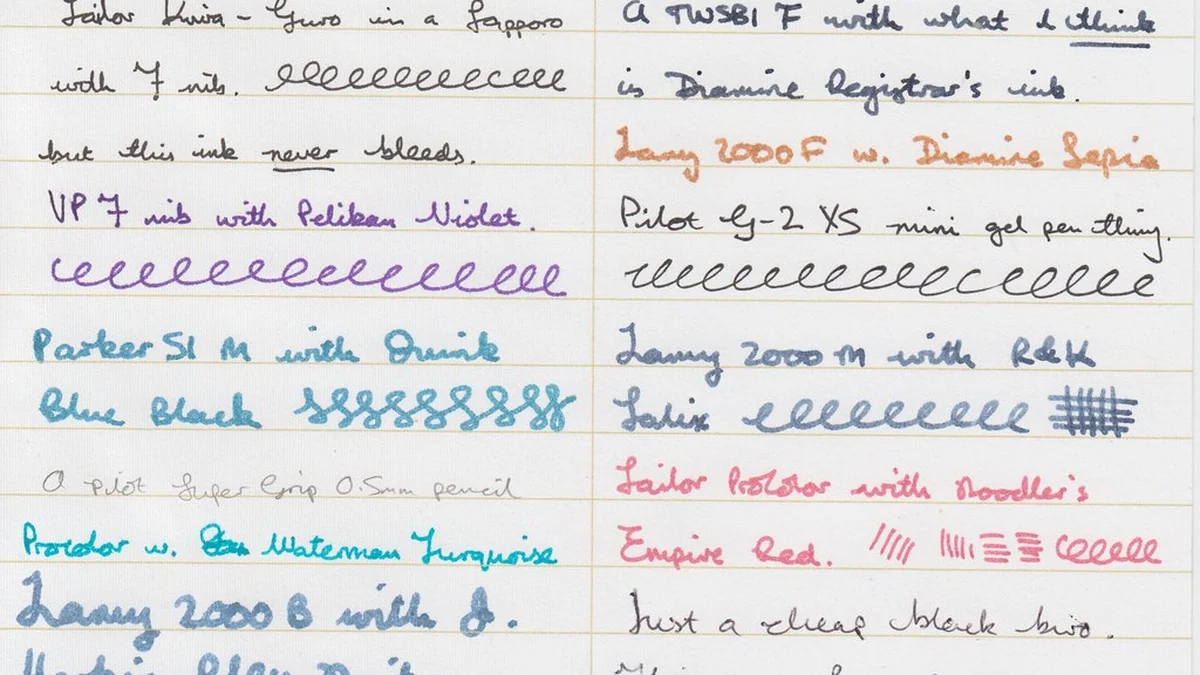 Sailor Kiwa-Guro in a Sapporo
with F nib.
but this ink never bleeds.
VP F nib with Pelikan Violet.
Parker 51 M with Quink
Blue Black
A pilot Super Grip 0.5mm pencil
Procolor w. Waterman Turquoise
Lamy 2000 B with J.
A TWSBI F with what I think
is Diamine Registrar's ink.
Lamy 2000 F w. Diamine Sepia
Pilot G-2 XS mini gel pen thing.
Lamy 2000 M with R&K
Salix
Sailor Procolor with Noodler's
Empire Red.
Just a cheap black biro.